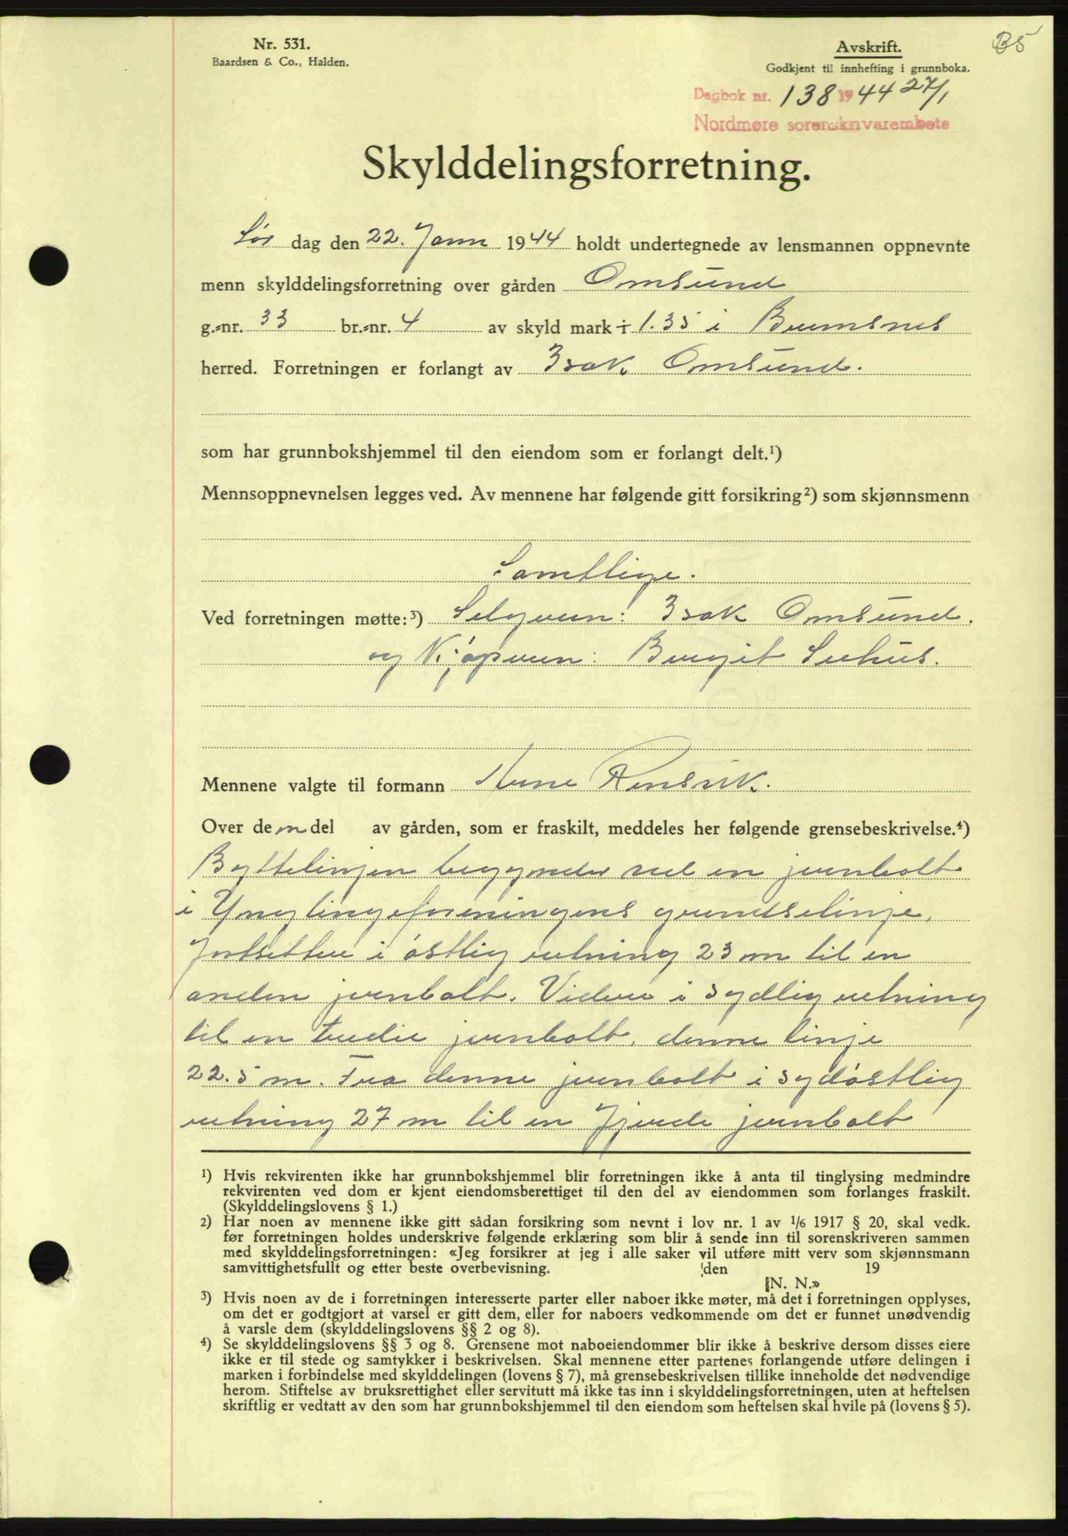 Nr. 531.
Baardsen & Co., Halden.
Avskrift.
Godkjent til innhefting i grunnboka.
B5
Dagbok nr. 138 1944 27/1
Nordmøre sorenskrivarembete
Skylddelingsforretning.
Lør dag den 22. Jann 1944 holdt undertegnede av lensmannen oppnevnte
menn skylddelingsforretning over gården Omsund
g.-nr. 33 br.-nr. 4 av skyld mark ÷ 1.35 i Bremsnes
herred. Forretningen er forlangt av Isak Omsund.
som har grunnbokshjemmel til den eiendom som er forlangt delt.¹)
Mennsoppnevnelsen legges ved. Av mennene har følgende gitt forsikring²) som skjønnsmenn
Samtlige.
Ved forretningen møtte:³) Selgeren: Isak Omsund.
og Kjøperen: Bergit Seehus.
Mennene valgte til formann Arne Ramsvik.
Over den del av gården, som er fraskilt, meddeles her følgende grensebeskrivelse.⁴)
Byttelinjen begynder ved en jernbolt
i Ynglingeforeningens grendselinje,
fortsetter i østlig retning 23 m til en
anden jernbolt. Videre i sydlig retning
til en tredie jernbolt, denne linje
22.5 m. Fra denne jernbolt i sydøstlig
retning 27 m til en fjerde jernbolt
¹) Hvis rekvirenten ikke har grunnbokshjemmel blir forretningen ikke å anta til tinglysing medmindre
rekvirenten ved dom er kjent eiendomsberettiget til den del av eiendommen som forlanges fraskilt.
(Skylddelingslovens § 1.)
²) Har noen av mennene ikke gitt sådan forsikring som nevnt i lov nr. 1 av 1/6 1917 § 20, skal vedk.
før forretningen holdes underskrive følgende erklæring som blir å sende inn til sorenskriveren sammen
med skylddelingsforretningen: «Jeg forsikrer at jeg i alle saker vil utføre mitt verv som skjønnsmann
samvittighetsfullt og etter beste overbevisning. den 19
N. N.»
³) Hvis noen av de i forretningen interesserte parter eller naboer ikke møter, må det i forretningen opplyses,
om det er godtgjort at varsel er gitt dem, eller for naboers vedkommende om det er funnet unødvendig
å varsle dem (skylddelingslovens §§ 2 og 8).
⁴) Se skylddelingslovens §§ 3 og 8. Grensene mot naboeiendommer blir ikke å beskrive dersom disses eiere
ikke er til stede og samtykker i beskrivelsen. Skal mennene etter partenes forlangende utføre delingen i
marken i forbindelse med skylddelingen (lovens § 7), må grensebeskrivelsen tillike inneholde det nødvendige
herom. Stiftelse av bruksrettighet eller servitutt må ikke tas inn i skylddelingsforretningen, uten at heftelsen
skriftlig er vedtatt av den som har grunnbokshjemmel til den eiendom som heftelsen skal hvile på (lovens § 5).